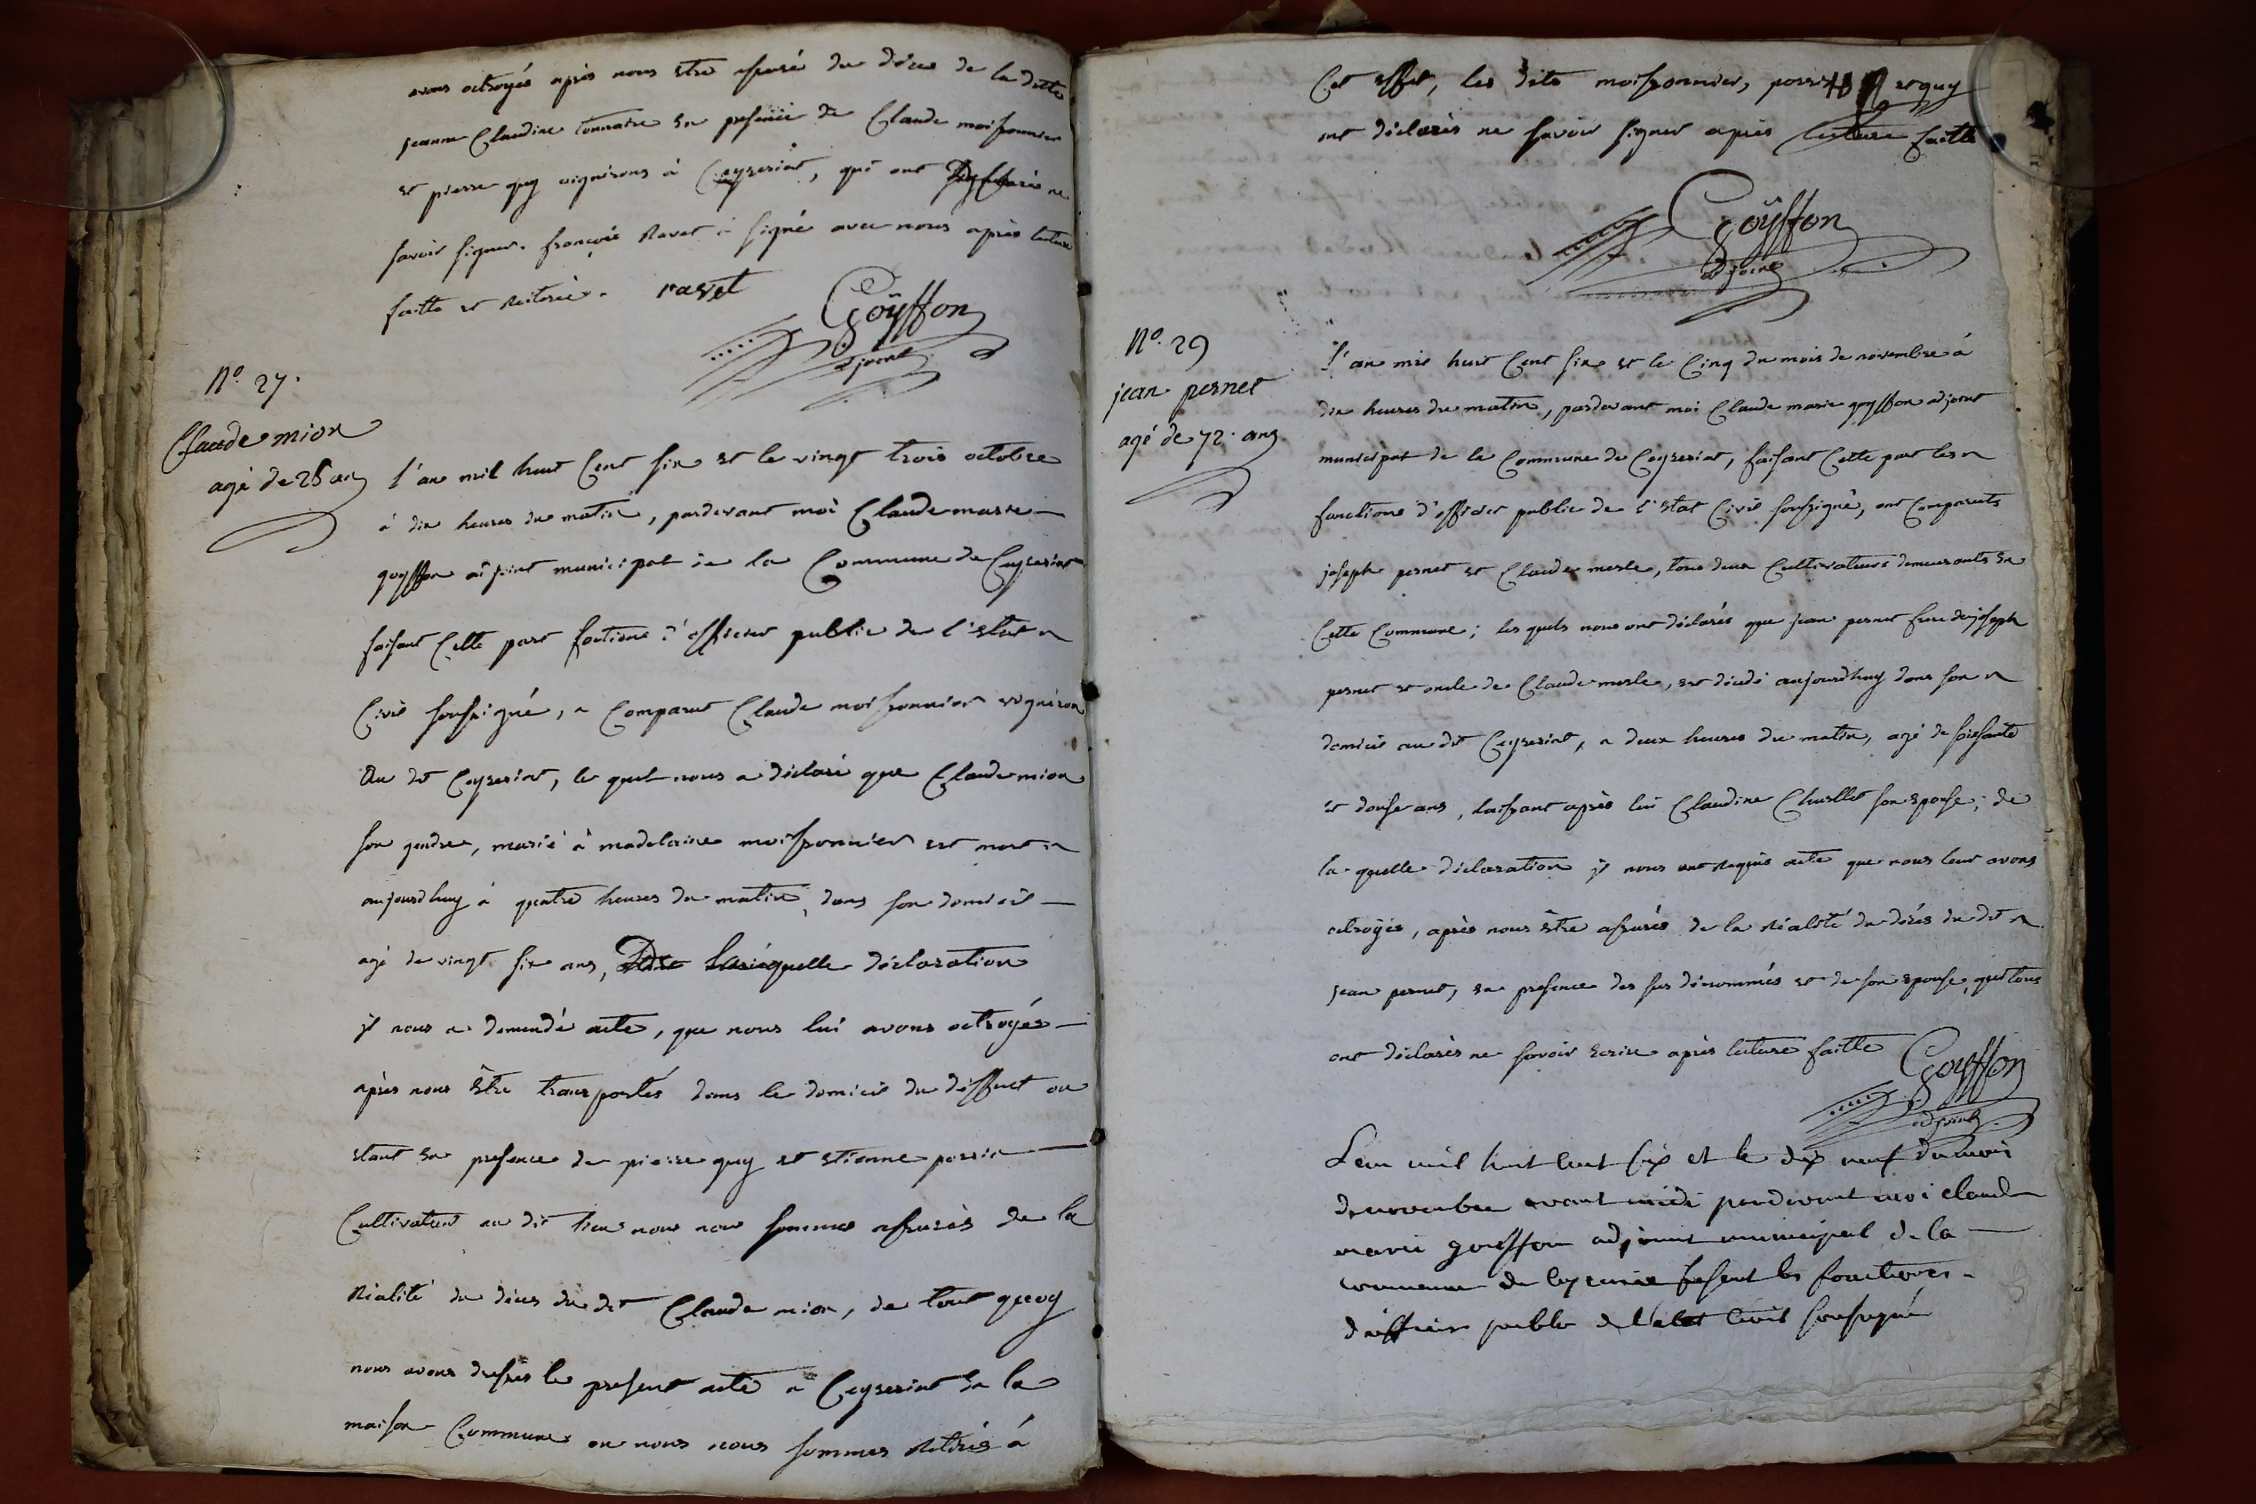 avons octroyés après nous etre assuré du décès de la ditte
jeanne Claudine tonnaire en presence de Claude moissonnier
et pierre guy vignerons à Ceyseriat, qui ont declaré ne
savoir signer. françois Ravet a signé avec nous après lecture
faitte et Reiterée. ravet
Goÿffon
adjoint
N.o 27.
Claude mion
agé de 26 ans
l'an mil huit Cent six et le vingt trois octobre
à dix heures du matin, pardevant moi Claude marie
goyffon adjoint municipal de la Commune de Ceyseriat
faisant Cette part foctions d'officier public de l'etat
Civil soussigné, a Comparut Claude moissonnier vigneron
au dit Ceyseriat, le quel nous a déclaré que Claude mion
son gendre, marié à madelaine moissonnier est mort
aujourdhuy à quatre heures du matin, dans son domicil
agé de vingt six ans, De laquelle déclaration
il nous a demandé acte, que nous lui avons octroyés
après nous être transportés dans le domicil du deffunt ou
etant en presence de pierre guy et etienne perrin
Cultivateur au dit lieu nous nous sommes assurés de la
Réalité du déces du dit Claude mion, de tout quoy
nous avons dressés le present acte à Ceyseriat en la
maison Commune ou nous nous sommes Retirés à
Cet effet, les dits moissonnier, perrin et guy
ont déclarés ne savoir signer après lecture faitte
Goÿffon
adjoint
N.o 29
jean pernet
agé de 72. ans
l'an mil huit Cent six et le Cinq du mois de novembre à
dix heures du matin, pardevant moi Claude marie goyffon adjoint
municipal de la Commune de Ceyseriat, faisant Cette part les
fonctions d'officier public de l'etat Civil soussigné, ont Comparuts
joseph pernet et Claude merle, tous deux Cultivateurs demeurants en
Cette Commune; les quels nous ont déclarés que jean pernet frere de joseph
pernet et oncle de Claude merle, est décédé aujourdhuy dans son
domicil au dit Ceyseriat, a deux heures du matin, agé de soissante
et douse ans, laissant après lui Claudine Chuillet son epouse; de
la quelle déclaration il nous ont Requis acte que nous leur avons
octroyés, après nous être assurés de la Réalité du décés du dit
jean pernet, en presence des sus dénommés et de son epouse, qui tous
ont déclarés ne savoir ecrire après lecture faitte
Goyffon
adjoint
L'an mil huit cent six et le dix neuf du mois
de novembre avant midi pardevant moi claude
marie goiffon adjoint municipal de la
commune de Ceyseria fesent les fonctions
d'officier public de l'etat Civil soussigné